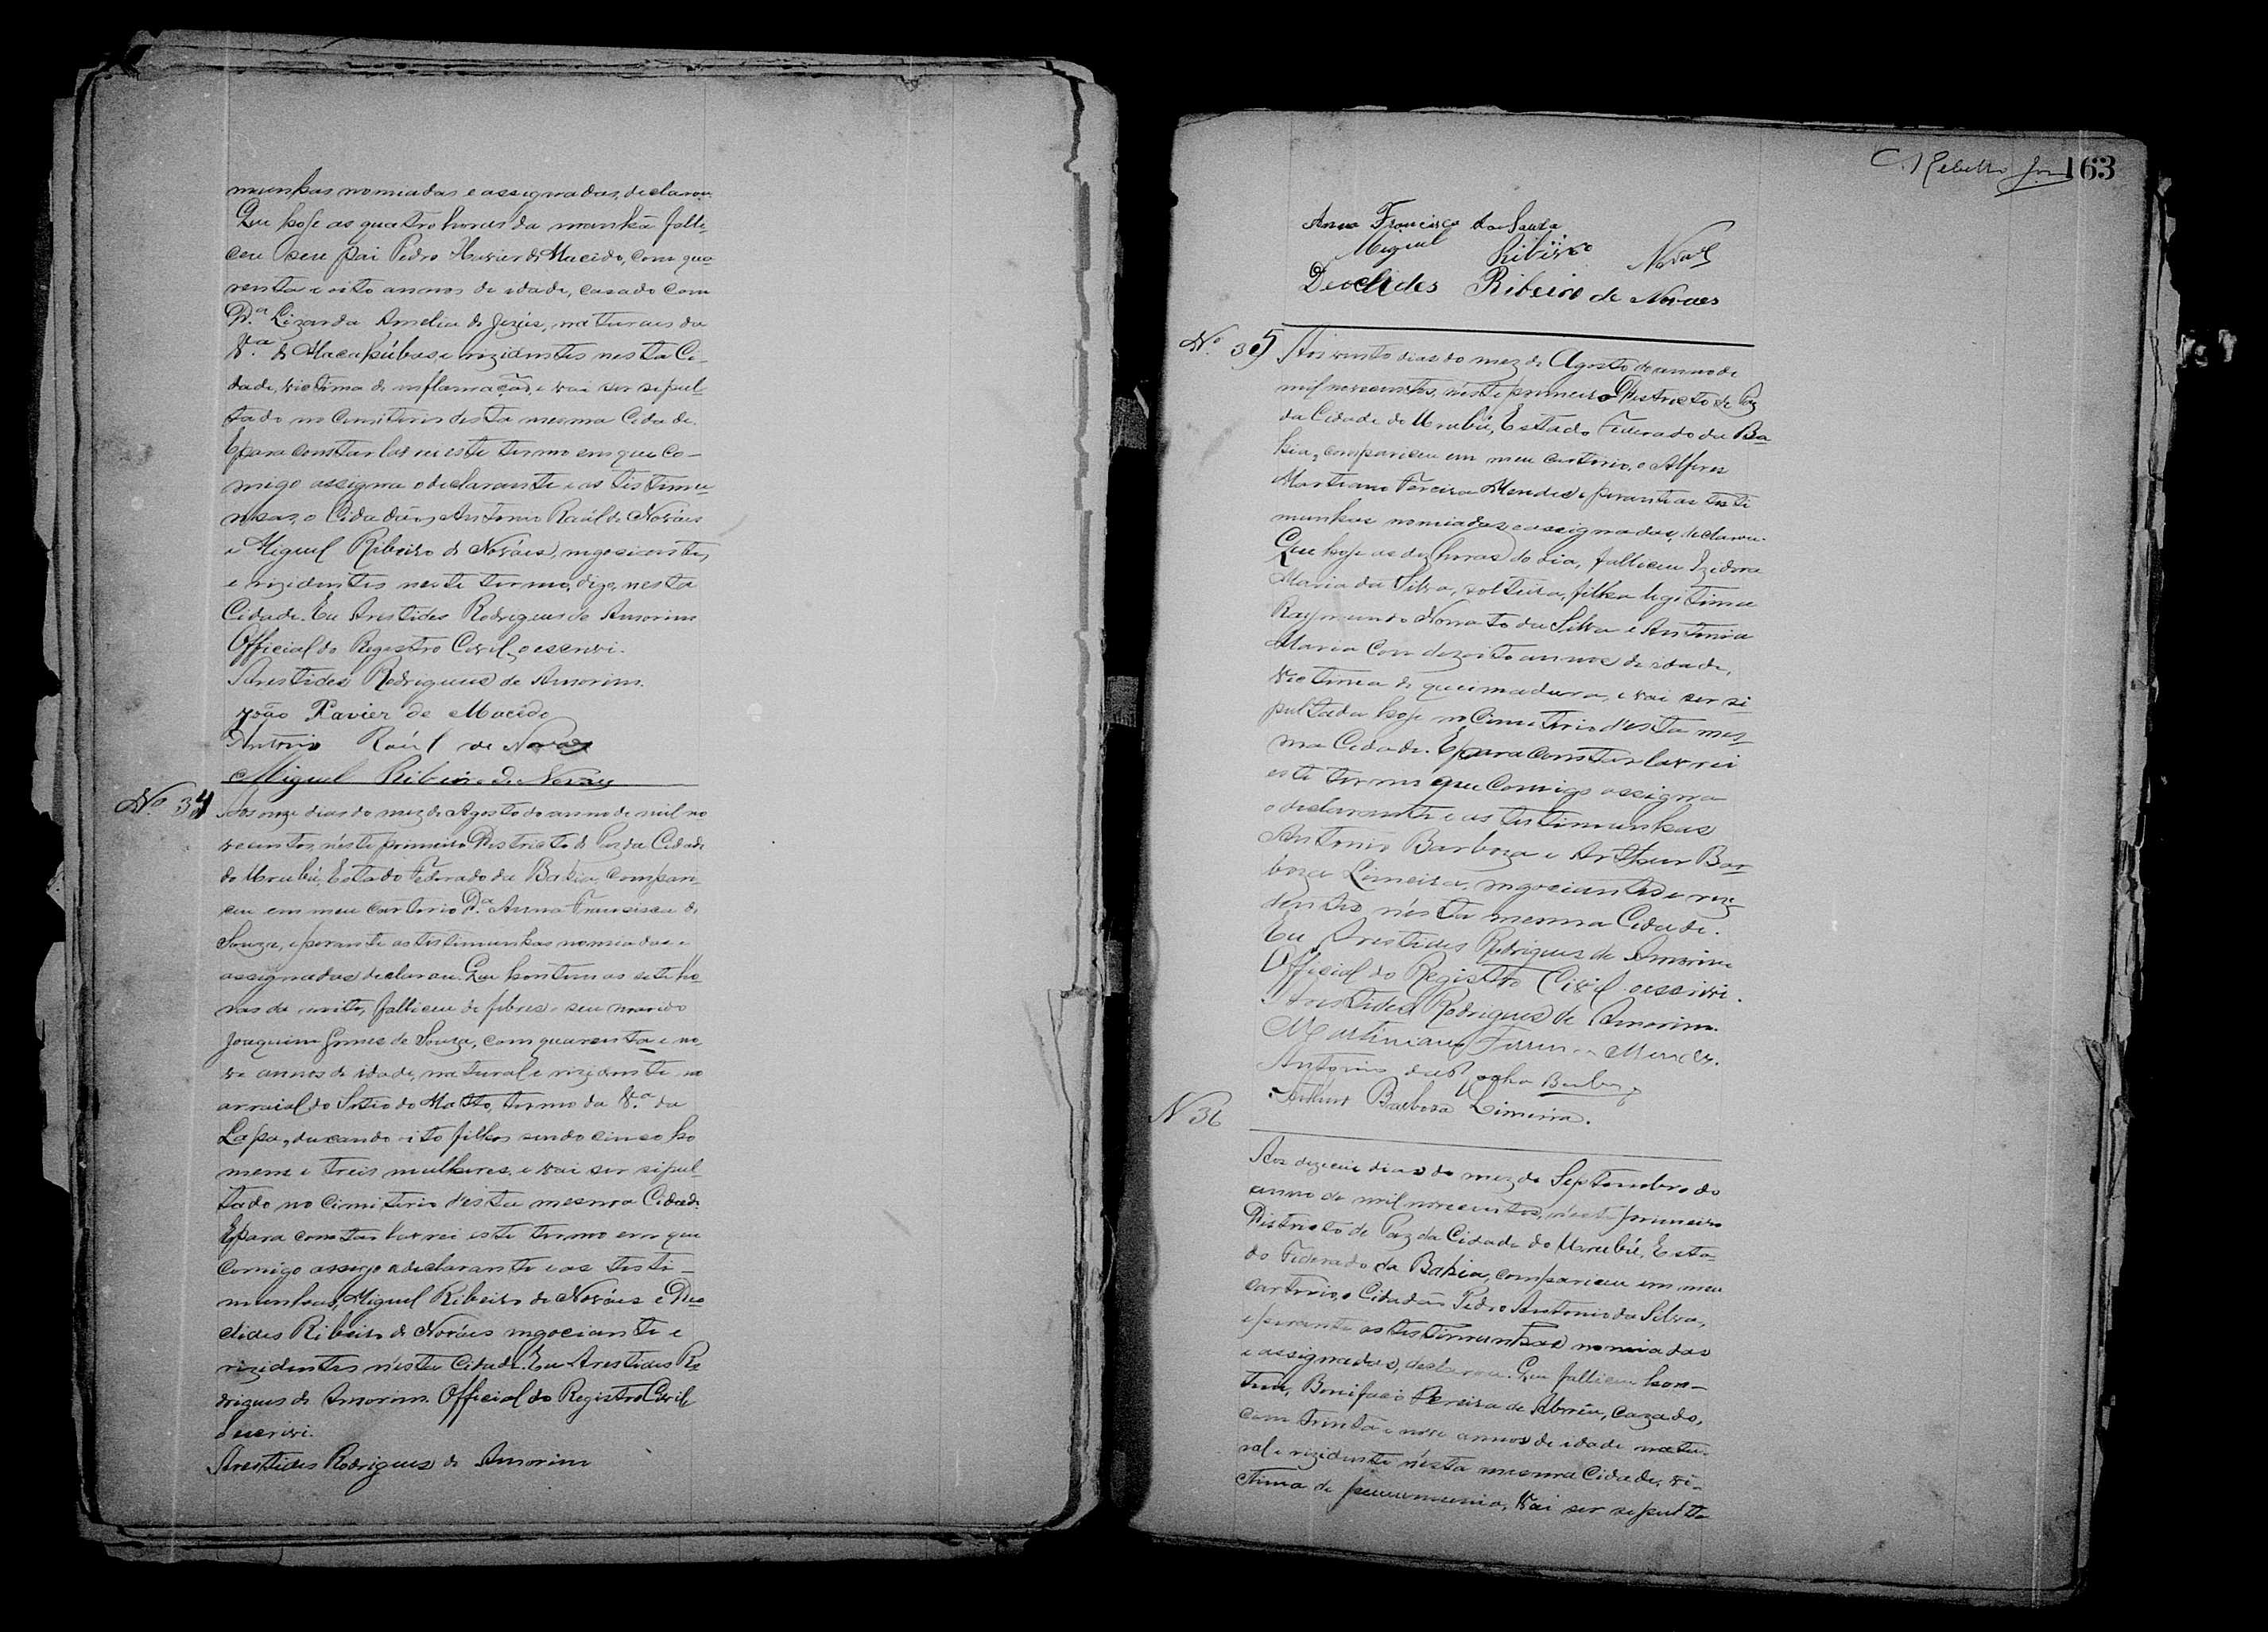 munhas nomiadas e assignadas, declarou.
Que hoje as quatro horas da manhã falle-
ceu seu pai Pedro Xavier de Macedo, com qua-
renta e oito annos de idade, casado com
D.ª Lizarda Amelia de Jezús, naturaes da
V.ª de Macahúbas, e rezidentes nesta Ci-
dade, victima de inflamação, e vai ser sepul-
tado no Cimiterio desta mesma Cidade.
E para constar lavrei este termo em que co-
migo assigna o declarante e as testimu-
nhas, o Cidadão, Antonio Raúl de Nováes
e Miguel Ribeiro de Nováes, negociantes,
e rezidentes neste termo, digo, nesta
Cidade. Eu Aristides Rodrigues de Amorim
Official do Registro Civil, o escrivi.
Aristides Rodrigues de Amorim.
João Xavier de Macêdo
Antonio Raúl de Novaes
Miguel Ribeiro de Nováes
Nº 34
Aos onze dias do mez de Agosto do anno de mil no
vecentos, néste primeiro Districto de Paz da Cidade
do Urubú, Estado Federado da Bahia, compare-
ceu em meu cartorio D.ª Anna Francisca de
Souza, e perante as testimunhas nomiadas e
assignadas declarou. Que hontem as sete ho-
ras da noite, falleceu de febres, seu marido
Joaquim Gomes de Souza, com quarenta e no
ve annos de idade, natural e rezidente no
arraial do Sitio do Matto, termo da V.ª da
Lapa, deixando oito filhos sendo cinco ho
mens e treis mulheres, e vai ser sepul-
tado no Cimiterio désta mesma Cidade.
E para constar lavrei este termo em que
comigo assigo a declarante e as testi-
munhas, Miguel Ribeiro de Nováes e Deo
clides Ribeiro de Nováes negociante e
rezidentes nésta Cidade. Eu Aristides Ro
drigues de Amorim. Official do Registro Civil
o escrivi.
Aristides Rodrigues de Amorim
163
Anna Francisca da Souza
Miguel Ribeiro Novaes
Deoclides Ribeiro de Novaes
Nº 35
Aos vinte dias do mez de Agosto do anno de
mil novecentos, néste primeiro Districto de Paz
da Cidade do Urubú, Estado Federado da Ba
hia, compareceu em meu cartorio, o Alferes
Martiano Fereira Mendes e perante as testi
munhas nomiadas e assignadas, declarou.
Que hoje as dez horas do dia, falleceu Izidora
Maria da Silva, solteira, filha legitima
Raymundo Nonato da Silva e Antonia
Maria com dezoito annos de idade,
victima de queimadura, e vai ser se
pultada hoje no Cimiterio désta mes-
ma Cidade. E para constar lavrei
este termo que comigo assigna
o declarante e as testimunhas
Antonio Barboza e Arthur Bar-
boza Limeira, negociantes e rezi-
dentes nésta mesma Cidade.
Eu Aristides Rodrigues de Amorim
Official do Registro Civil o escrivi.
Aristides Rodrigues de Amorim.
Martiniano Mendes.
Antonio da Rocha
Arthur Barbosa Limeira.
N 36
Aos dias do mez de Septembro do
anno de mil novecentos, néste primeiro
Districto de Paz da Cidade do Urubú, Esta-
do Federado da Bahia, compareceu em meu
cartorio, o Cidadão Pedro Antonio da Silva,
e perante as testimunhas nomiadas
e assignadas, declarou. Que falleceu hon-
tem, Bonifacio Pereira de Abrêu, cazado,
com trinta e nove annos de idade natu-
ral e rezidente nésta mesma Cidade, vi-
ctima de pneumonia, vai ser sepulta